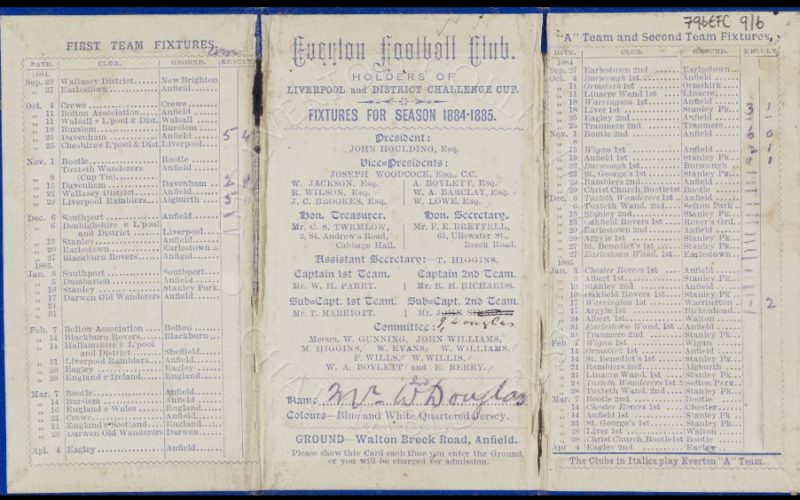 796EFC 9/6
FIRST TEAM FIXTURES,
DATE. CLUB. GROUND. RESULT
1884.
Sep. 20 Wallasey District...... New Brighton
„ 27 Earlestown ...... Anfield
Oct. 4 Crewe ...... Crewe
„ 11 Bolton Association ... Anfield
„ 11 Walsall & L'pool & Dist. Walsall
„ 18 Burslem ...... Burslem
„ 25 Davenham ...... Anfield 5 4
„ 25 Cheshire & L'pool & Dist Liverpool
Nov. 1 Bootle ...... Bootle
Toxteth Wanderers
„ 8 (Cup Tie) Anfield
„ 15 Davenham ...... Davenham
„ 22 Wallasey District ...... Anfield
„ 29 Liverpool Ramblers... Aigburth
Dec. 6 Southport ...... Anfield
„ 6 Denbighshire v L'pool
and District ...... Liverpool
„ 13 Stanley ...... Anfield
„ 20 Earlestown ...... Earlestown
„ 27 Blackburn Rovers... Anfield
1885.
Jan. 3 Southport ...... Southport
„ 5 Dumbarton ...... Anfield
„ 10 Stanley ...... Stanley Park
„ 17 Darwen Old Wanderers Anfield
„ 24
„ 31
Feb. 7 Bolton Association ... Bolton
„ 14 Blackburn Rovers... Blackburn
„ 14 Hallamshire v L'pool
and District ...... Sheffield
„ 21 Liverpool Ramblers... Anfield
„ 28 Eagley ...... Eagley
„ 28 England v Ireland
Mar. 7 Bootle ...... Anfield
„ 14 Burslem ...... Anfield
„ 16 England v Wales ... England
„ 21 Crewe ...... Anfield
„ 21 England v Scotland... England
„ 28 Darwen Old Wanderers Darwen
Apl. 4 Eagley ...... Anfield
Everton Football Club.
HOLDERS OF
LIVERPOOL and DISTRICT CHALLENGE CUP.
FIXTURES FOR SEASON 1884-1885.
President:
JOHN HOULDING, ESQ.
Vice-Presidents:
JOSEPH WOODCOCK, ESQ., C.C.
W. JACKSON, ESQ. A. BOYLETT, ESQ.
R. WILSON, ESQ. W. A. BARCLAY, ESQ.
J. C. BROOKES, ESQ. W. LOWE, ESQ.
Hon. Treasurer. Hon. Secretary.
Mr. C. S. TWEMLOW, Mr. F. E. BRETTELL,
2, St. Andrew's Road, 61, Ullswater St.,
Cabbage Hall. Breck Road.
Assistant Secretary:—T. HIGGINS.
Captain 1st Team. Captain 2nd Team.
Mr. W. H. PARRY. Mr. R. H. RICHARDS.
Sub-Capt. 1st Team. Sub-Capt. 2nd Team.
Mr. T. MARRIOTT. Mr. JOHN
J Douglas
Committee:
Messrs. W. GUNNING, JOHN WILLIAMS,
M. HIGGINS, W. EVANS, W. WILLIAMS,
F. WILLS, W. WILLIS,
W. A. BOYLETT and E. BERRY.
Name Mr W Douglas
Colours—Blue and White Quartered Jersey.
GROUND—Walton Breck Road, Anfield.
Please show this Card each time you enter the Ground,
or you will be charged for admission.
"A" Team and Second Team Fixtures,
DATE. CLUB. GROUND. RESULT
1884
Sep. 27 Earlestown 2nd ...... Earlestown
Oct. 4 Burscough 1st ...... Anfield
„ 11 Ormskirk 1st ...... Ormskirk
„ 11 Linacre Wand 1st ... Linacre
„ 18 Warrington 1st ...... Anfield
„ 18 Liver 1st ...... Stanley Pk. 3 1
„ 25 Eagley 2nd ...... Anfield
„ 25 Tranmere 2nd ...... Tranmere
Nov. 1 Bootle 2nd ...... Anfield 6 0
„ 8
„ 15 Wigan 1st ...... Anfield 2 1
„ 15 Anfield 1st ...... Stanley Pk.
„ 22 Burscough 1st ...... Burscough
„ 22 St. George's 1st ...... Stanley Pk.
„ 29 Ramblers 2nd ...... Anfield
„ 29 Christ Church, Bootle 1st Bootle
Dec. 6 Toxteth Wanderers 1st Anfield
„ 6 Toxteth Wand. 2nd ... Sefton Park
„ 13 Stanley 2nd ...... Stanley Pk.
„ 13 Oakfield Rovers 1st ... Rover's Grd.
„ 20 Earlestown 2nd ...... Anfield
„ 20 Argyle 1st ...... Stanley Pk.
„ 27 St. Benedict's 1st ... Stanley Pk.
„ 27 Earlestown Wand. 1st Earlestown
1885
Jan. 3 Chester Rovers 1st ... Anfield
Albert 1st ...... Stanley Pk.
„ 10 Stanley 2nd ...... Anfield
„ 10 Oakfield Rovers 1st ... Stanley Pk.
„ 17 Warrington 1st ...... Warrington 2
„ 17 Argyle 1st ...... Birkenhead
„ 24 Albert 1st ...... Walton
„ 31 Earlestown Wand. 1st Anfield
„ 31 Tranmere 2nd ...... Stanley Pk.
Feb 7 Wigan 1st ...... Wigan
„ 14 Ormskirk 1st ...... Anfield
„ 14 St. Benedict's 1st ... Stanley Pk.
„ 21 Ramblers 2nd ...... Aigburth
„ 21 Linacre Wand. 1st ... Stanley Pk.
„ 28 Toxteth Wanderers 1st Sefton Park
„ 28 Toxteth Wand. 2nd ... Stanley Pk.
Mar. 7 Bootle 2nd ...... Bootle
„ 14 Chester Rovers 1st ... Chester
„ 14 Anfield 1st ...... Stanley Pk.
„ 21 St. George's 1st ...... Stanley Pk.
„ 28 Liver 1st ...... Walton
„ 28 Christ Church, Bootle 1st Bootle
Apr 4 Eagley 2nd ...... Eagley
The Clubs in Italics play Everton "A" Team.